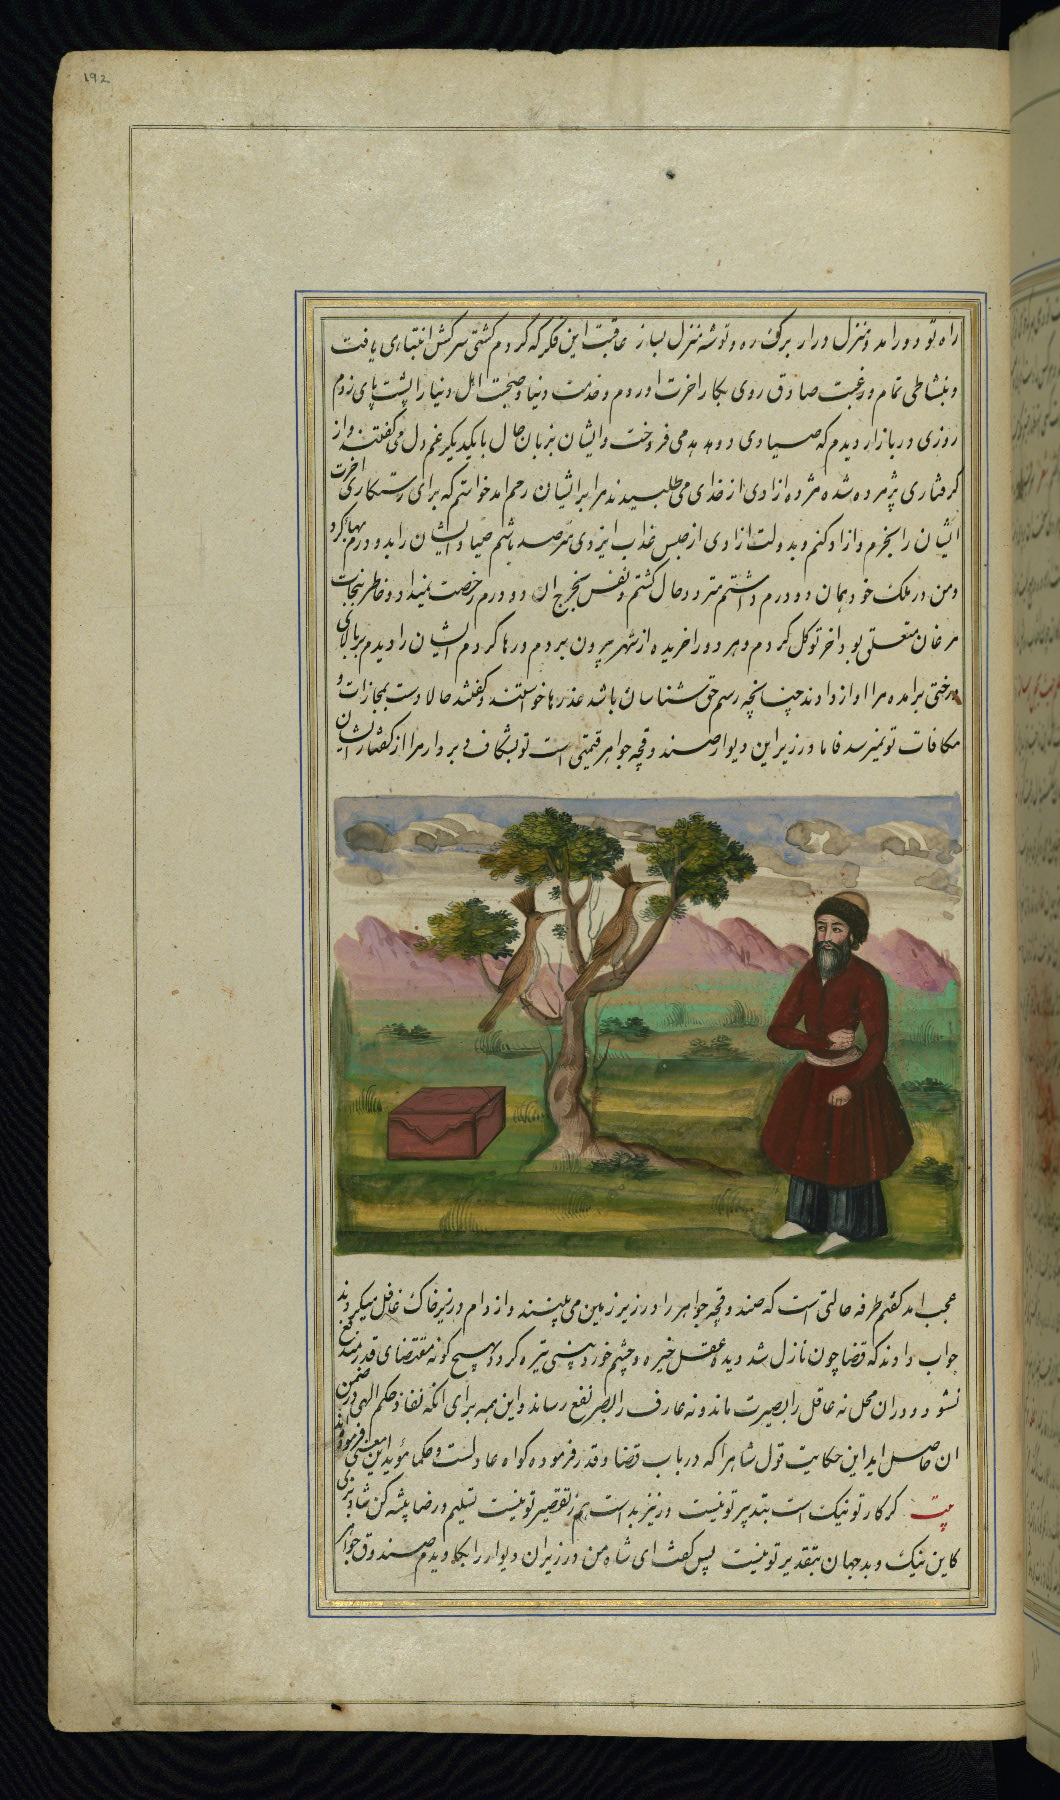 ۱۹۲
راه تو دور امد و منزل دراز برگ ره و توشه منزل بساز عاقبت این فکر که کردم کشتی سرکش انتباهی یافت
و بنشاطی تمام و رغبت صادق روی بکار اخرت اوردم و خدمت دنیا و صحبت اهل دنیا را پشت پای زدم
روزی در بازار دیدم که صیادی دو هدهد می فروخت و ایشان بزبان حال با یکدیکر غم دل می گفتند و از
کرفتاری پژمرده شده مژده ازادی از خدای می طلبیدند مرا بر ایشان رحم امد خواستم که برای رستکاری اخرت
ایشان را بخرم و ازاد کنم و بدولت ازادی از حبس عذاب ایزدی مترصد باشم صیاد ایشان را بدو درم بها کرد
و من در ملک خود همان دو درم داشتم متردد حال کشتم و نفس بخرج ان دو درم رخصت نمیداد و خاطر بنجات
مرغان متعلق بود اخر توکل کردم و هر دو را خریده از شهر بیرون بردم و رها کردم ایشان را دیدم بر بالای
درختی برامده مرا اواز دادند چنانچه رسم حق شناسان باشد عذرها خواستند و کفتند حالا دست بمجازات و
مکافات تو نمیرسد فاما در زیر این دیوار صندوقچه جواهر قیمتی است تو بشکاف و بردار مرا از کفتار ایشان
عجب امد کفتم طرفه حالتی است که صندوقچه جواهر را در زیر زمین می بینند و از دام در زیر خاک غافل میکردند
جواب دادند که قضا چون نازل شد دیده عقل خیره و چشم خرد بینی تیره کردد بهیچ کونه مقتضای قدر مندفع
نشود و در ان محل نه عاقل را بصیرت ماند و نه عارف را بصر نفع رساند و این همه برای انکه نفاذ حکم الهی در ضمن
ان حاصل اید این حکایت قول شاهرا که در باب قضا و قدر فرموده کواه عادلست و حکما مؤید این معنی فرموده اند
بیت کر کار تو نیک است بتدبیر تو نیست ور نیز بد است هم ز تقصیر تو نیست تسلیم و رضا پیشه کن شاد بزی
کاین نیک و بد جهان بتقدیر تو نیست پس کفت ای شاه من در زیر ان دیوار را بکاویدم صندوق جواهر